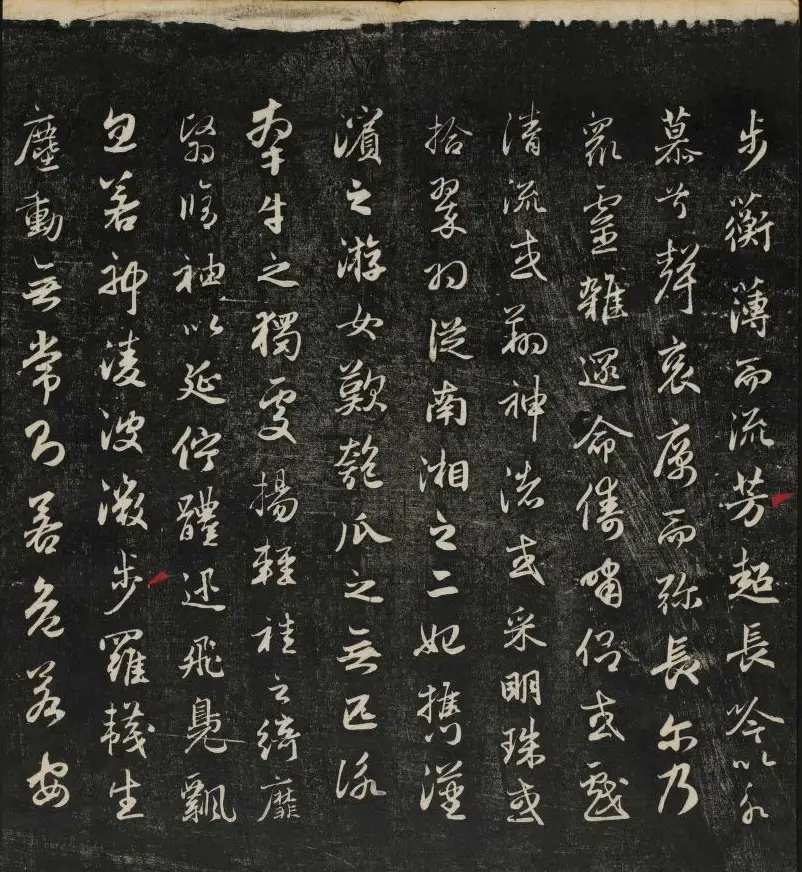 步蘅薄而流芳超長吟以永
慕兮聲哀厲而弥長尔乃
眾靈雜遝命儔嘯侶或戲
清流或翔神渚或采明珠或
拾翠羽從南湘之二妃攜漢
濱之游女歎匏瓜之無匹詠
牽牛之獨處揚輕袿之綺靡
翳脩袖以延佇體迅飛鳧飄
忽若神淩波微步羅襪生
塵動無常乃若危若安